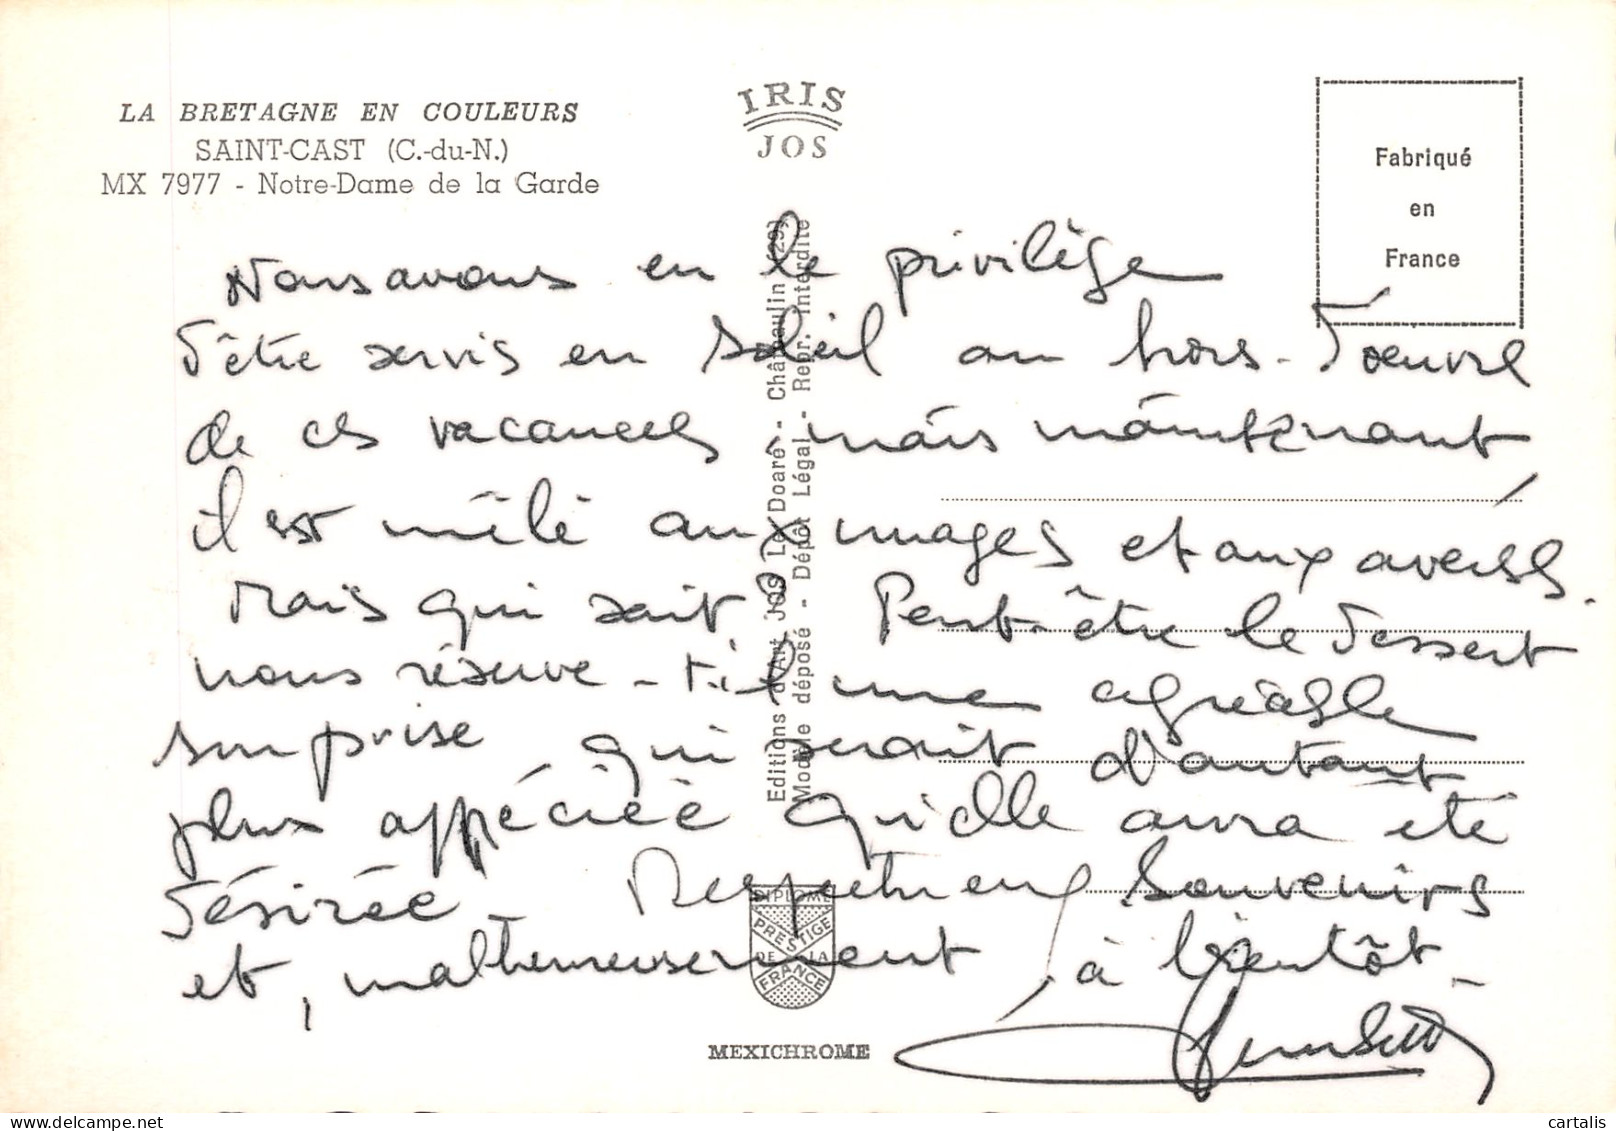 LA BRETAGNE EN COULEURS
SAINT-CAST (C.-du-N.)
MX 7977 - Notre-Dame de la Garde
IRIS
JOS
Fabriqué
en
France
Nous avons eu le privilège
d'être servis en soleil au hors-d'œuvre
de ces vacances, mais maintenant,
il est mêlé aux nuages et aux averses.
Mais qui sait. Peut-être le dessert
nous réserve-t-il une agréable
surprise qui serait d'autant
plus appréciée qu'elle aura été
désirée. Respectueux souvenirs
et, malheureusement, à bientôt.
Editions d'Art JOS Le Doaré - Châteaulin (29)
Modèle déposé - Dépôt Légal - Repr. Interdite
DIPLOME
PRESTIGE
DE LA
FRANCE
MEXICHROME
cartalis